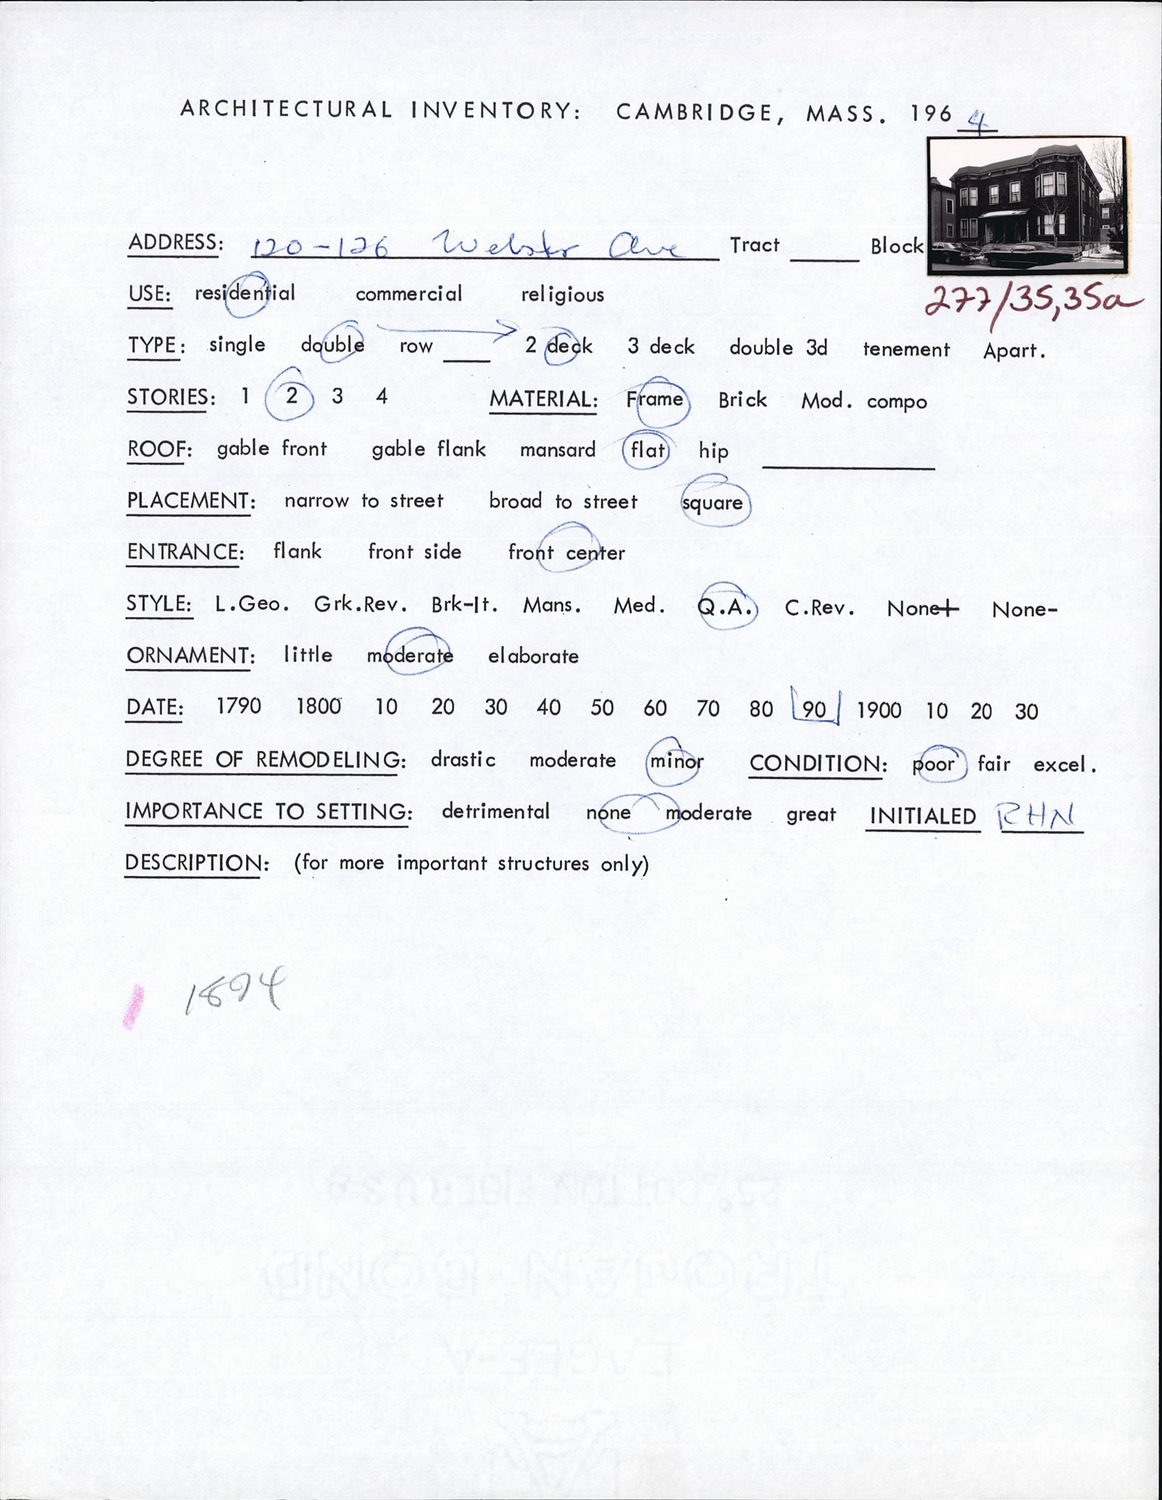 ARCHITECTURAL INVENTORY: CAMBRIDGE, MASS. 196 4
ADDRESS: 120-126 Webster Ave Tract ____ Block
277/35,35a
USE: residential commercial religious
TYPE: single double row ____ 2 deck 3 deck double 3d tenement Apart.
STORIES: 1 2 3 4 MATERIAL: Frame Brick Mod. compo
ROOF: gable front gable flank mansard flat hip ____
PLACEMENT: narrow to street broad to street square
ENTRANCE: flank front side front center
STYLE: L.Geo. Grk.Rev. Brk-It. Mans. Med. Q.A. C.Rev. None+ None-
ORNAMENT: little moderate elaborate
DATE: 1790 1800 10 20 30 40 50 60 70 80 90 1900 10 20 30
DEGREE OF REMODELING: drastic moderate minor CONDITION: poor fair excel.
IMPORTANCE TO SETTING: detrimental none moderate great INITIALED RHN
DESCRIPTION: (for more important structures only)
1894